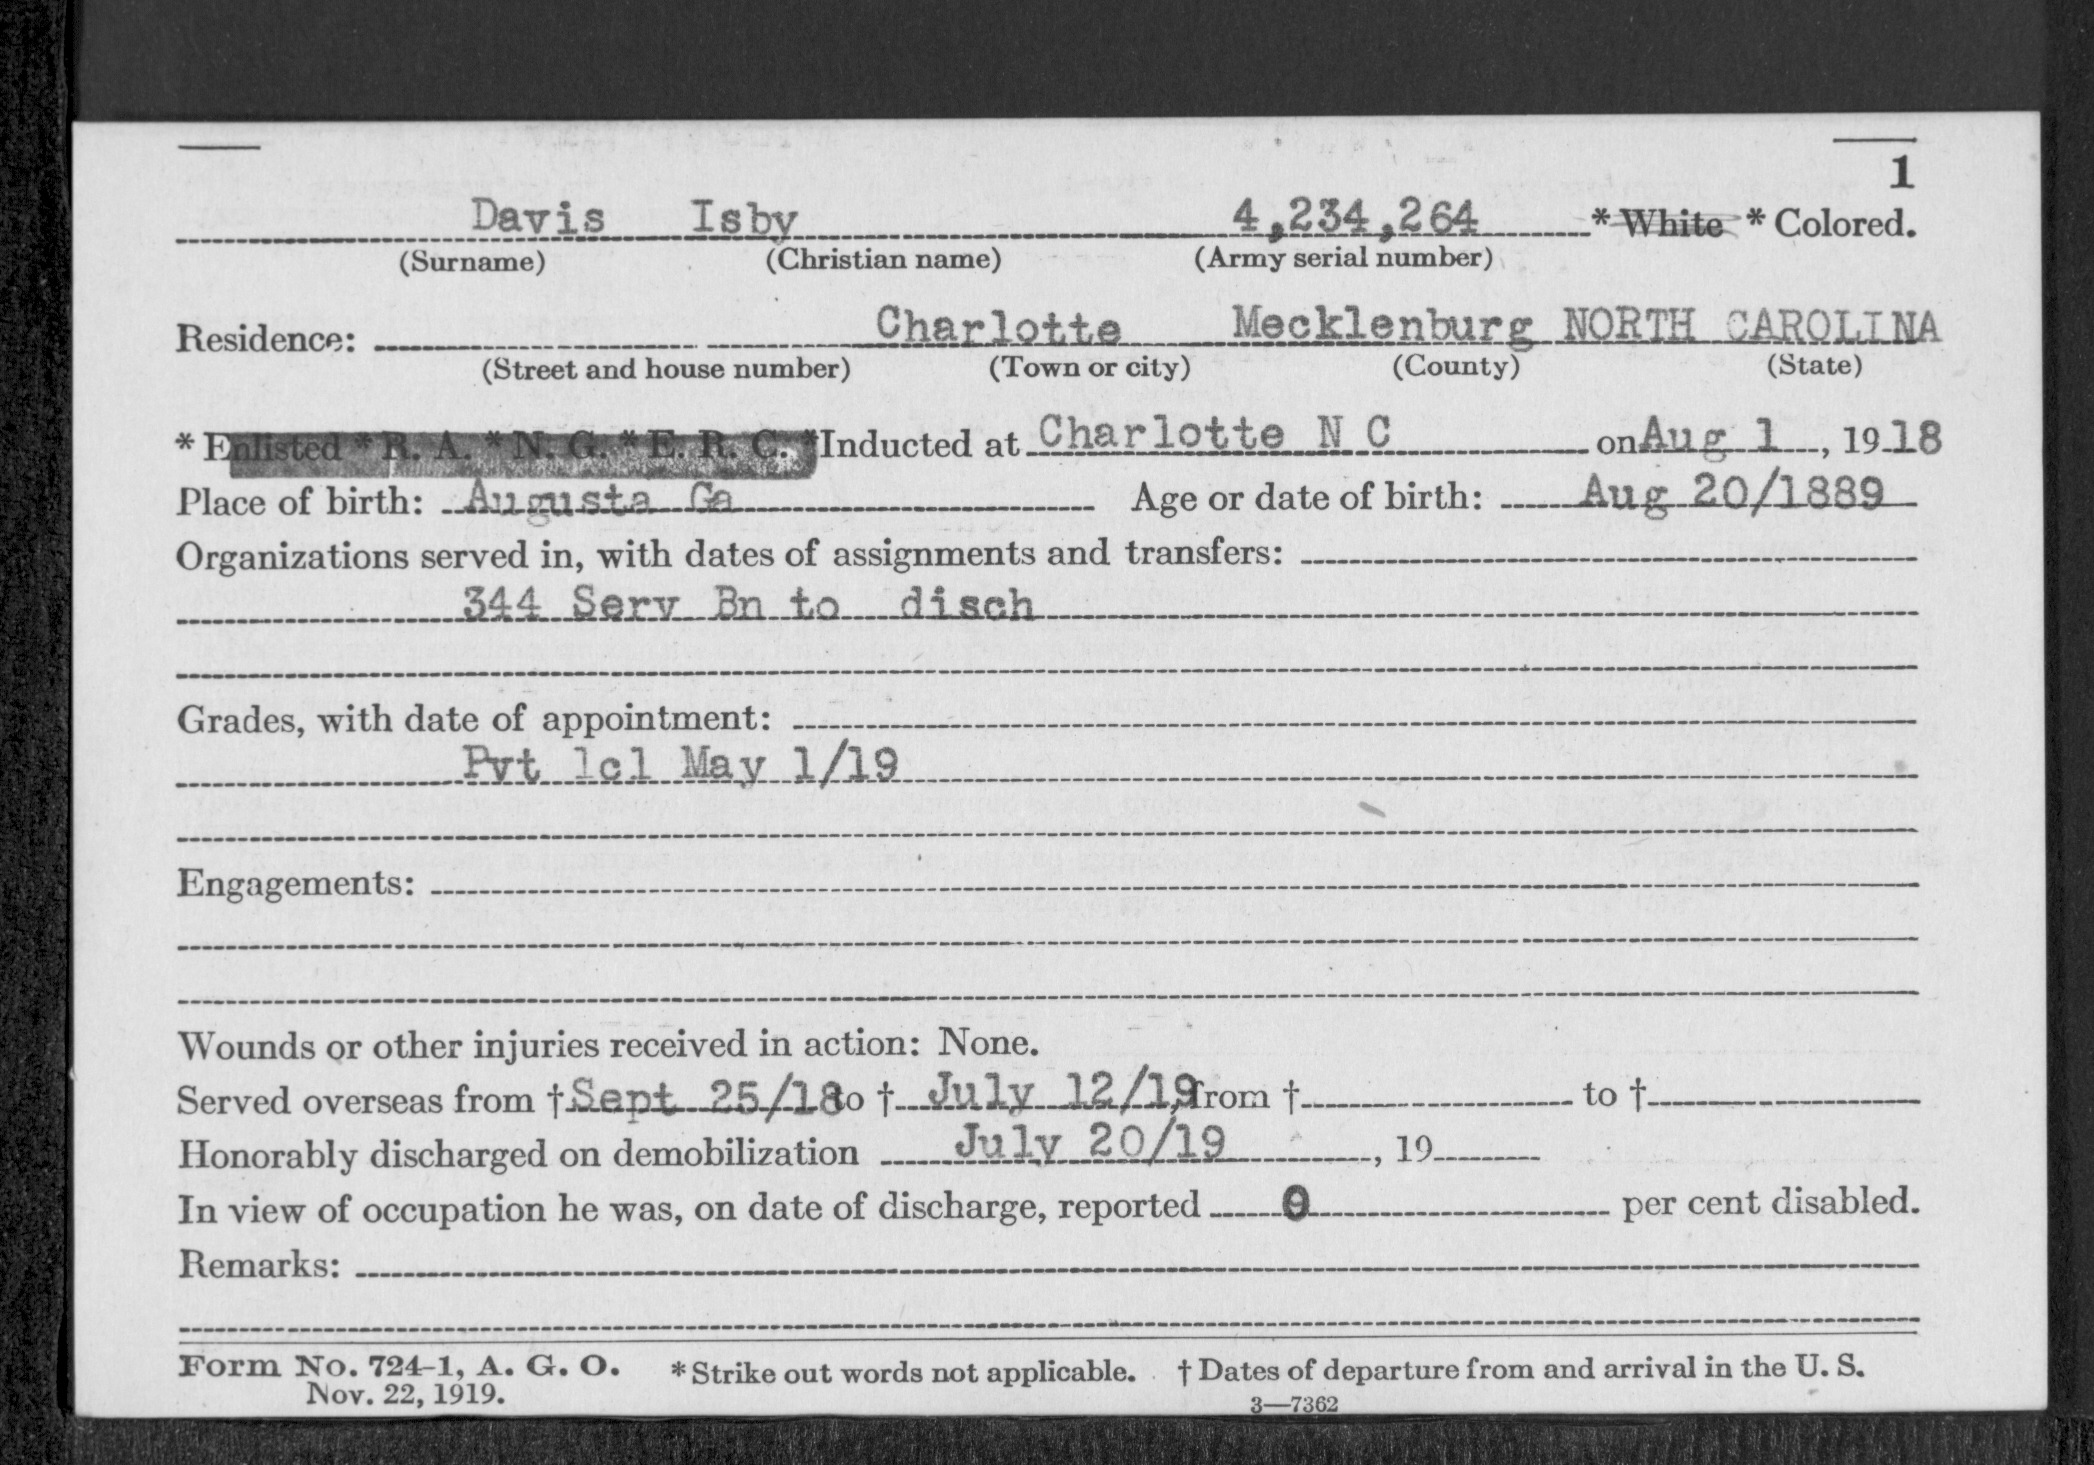 1
Davis Isby 4,234,264 * White * Colored.
(Surname) (Christian name) (Army serial number)
Residence: Charlotte Mecklenburg NORTH CAROLINA
(Street and house number) (Town or city) (County) (State)
* Enlisted * R. A. * N. G. * E. R. C. * Inducted at Charlotte N C on Aug 1, 1918
Place of birth: Augusta Ga Age or date of birth: Aug 20/1889
Organizations served in, with dates of assignments and transfers:
344 Serv Bn to disch
Grades, with date of appointment:
Pvt 1cl May 1/19
Engagements:
Wounds or other injuries received in action: None.
Served overseas from † Sept 25/18 to † July 12/19, from † to †
Honorably discharged on demobilization July 20/19, 19
In view of occupation he was, on date of discharge, reported 0 per cent disabled.
Remarks:
Form No. 724-1, A. G. O. * Strike out words not applicable. † Dates of departure from and arrival in the U. S.
Nov. 22, 1919. 3—7362